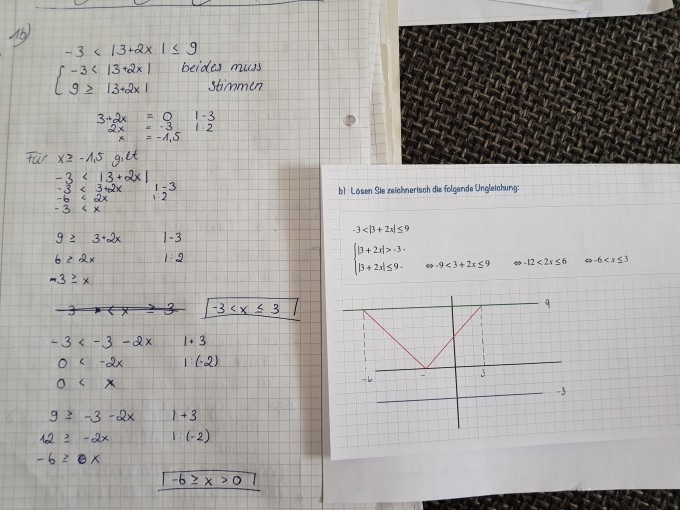 1b)
-3 < |3+2x| ≤ 9
{ -3 < |3+2x| beides muss
9 ≥ |3+2x| stimmen
3+2x = 0 |-3
2x = -3 |:2
x = -1,5
Für x ≥ -1,5 gilt
-3 < |3+2x|
-3 < 3+2x |-3
-6 < 2x |:2
-3 < x
9 ≥ 3+2x |-3
6 ≥ 2x |:2
3 ≥ x
-3 < x ≥ 3 -3 < x ≤ 3
-3 < -3 - 2x |+3
0 < -2x |:(-2)
0 < x
9 ≥ -3 - 2x |+3
12 ≥ -2x |:(-2)
-6 ≥ x
-6 ≥ x > 0
b) Lösen Sie zeichnerisch die folgende Ungleichung:
-3<|3+2x|≤9
{ |3+2x|>-3-
|3+2x|≤9- ⇔-9<3+2x≤9 ⇔-12<2x≤6 ⇔-6<x≤3
9
-6 - 3
-3